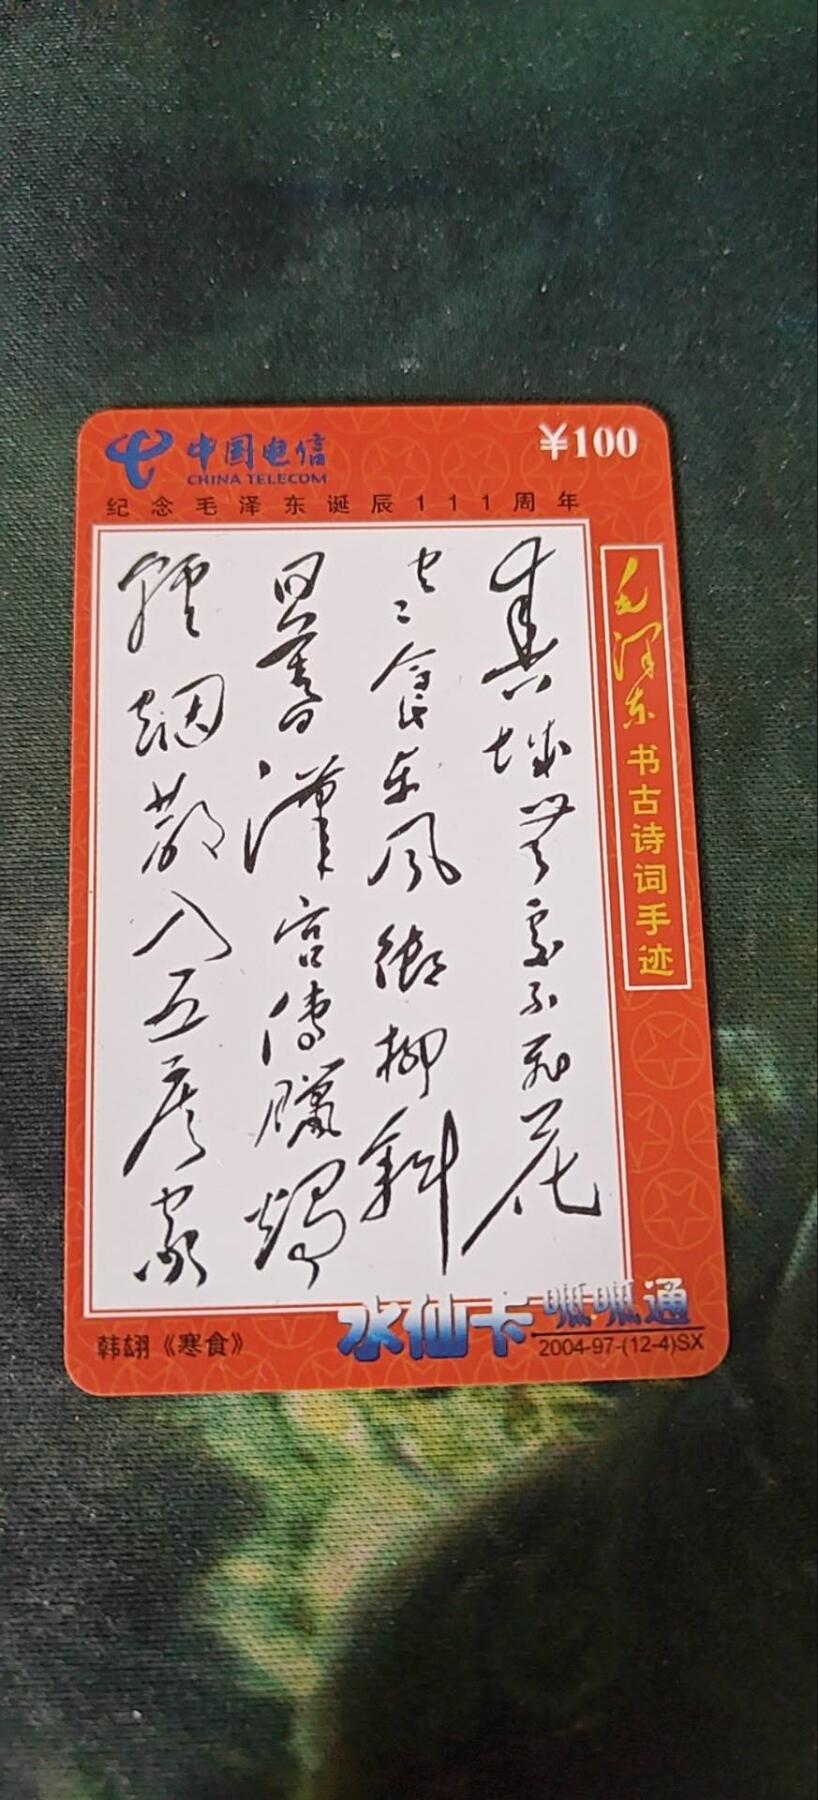 中国电信
CHINA TELECOM
¥100
纪念毛泽东诞辰111周年
毛泽东书古诗词手迹
春城無處不飛花
寒食东風御柳斜
日暮漢宮傳臘燭
輕烟散入五侯家
韩翃《寒食》
水仙卡 呱呱通
2004-97-(12-4)SX